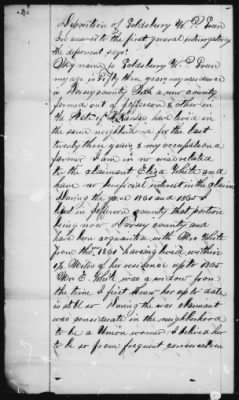 Deposition of Goldsbury W. P. Green
In answer to the first general interrogatory
the deponent says
My name is Goldsbury W. P. Green
my age is Fifty three years, my residence
is Dorsey county Ark a new county
formed out of Jefferson & other in
the State of Arkansas have lived in
the same neighborhood for the last
twenty three years & my occupation a
farmer I am in no way related
to the claimant Eliza White and
have no beneficial interest in the claim
During the year 1861 and 1865 I
lived in Jefferson county that portion
being now Dorsey county and
have been acquainted with Mrs White
from 1861 having lived within
1½ Miles of her residence up to 1865
Mrs E. White was a widow from
the time I first knew her up to date
is still so During the war claimant
was considerate in the neighborhood
to be a Union woman I believe her
to be so from frequent conversation